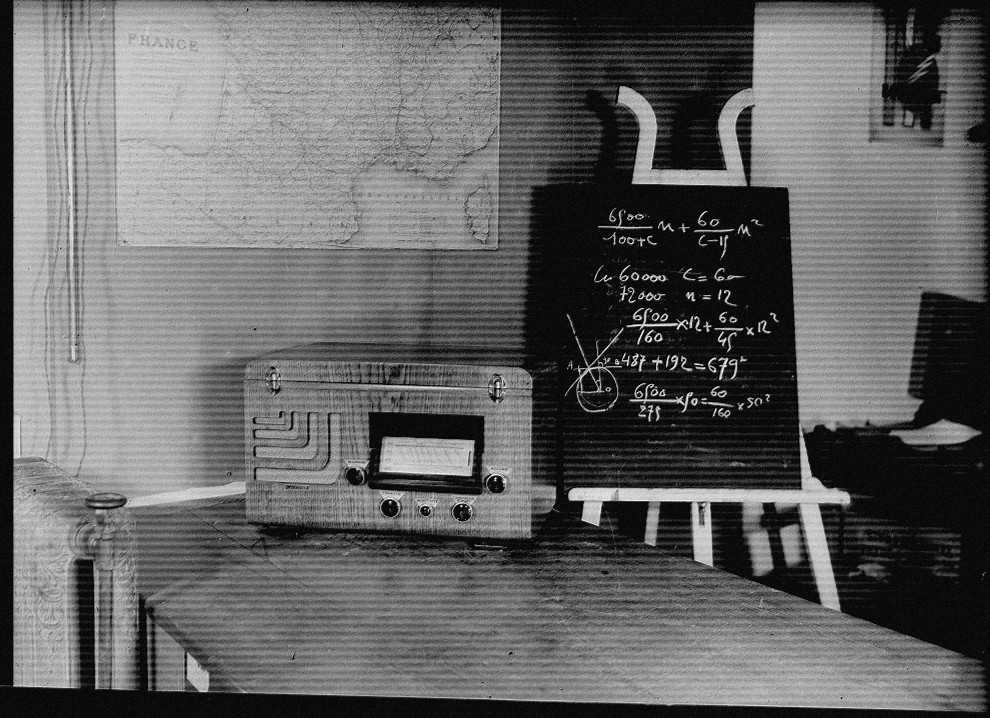 FRANCE
6500/100+C n + 60/C-15 n²
60000 C = 60
72000 n = 12
6500/160 × 12 + 60/45 × 12²
487 + 192 = 679
6500/275 × 50 = 60/160 × 50²